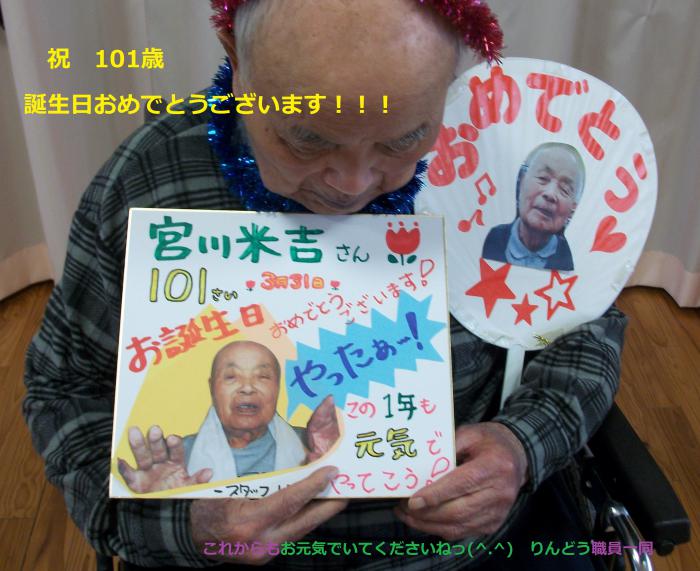 祝　101歳
誕生日おめでとうございます！！！
おめでとう
宮川米吉さん
101さい
3月31日
お誕生日
おめでとう
ございます!
やったぁ~!
この1年も
元気で
やってこう!
ースタッフ
これからもお元気でいてくださいねっ(^.^)　りんどう職員一同